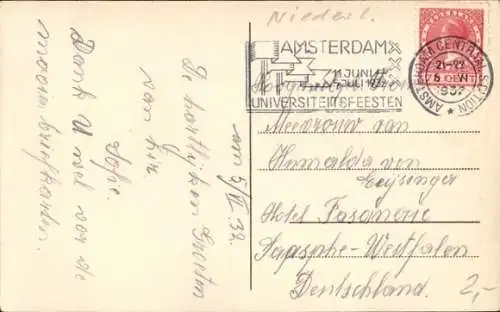 Niederl.
AMSTERDAM XXX
11 JUNI
JULI 1932
UNIVERSITEITSFEESTEN
AMSTERDAM CENTRAAL STATION
1932
7½ CENT
Mevrouw van
Humalda von
Eysinger
Hotel Fasanerie
Saasphe-Westfalen
Deutschland.
2,-
5/VI-32.
De hartlijken Groeten
van hier
Sofie.
Dank U wel vor de
mooien briefkarten.